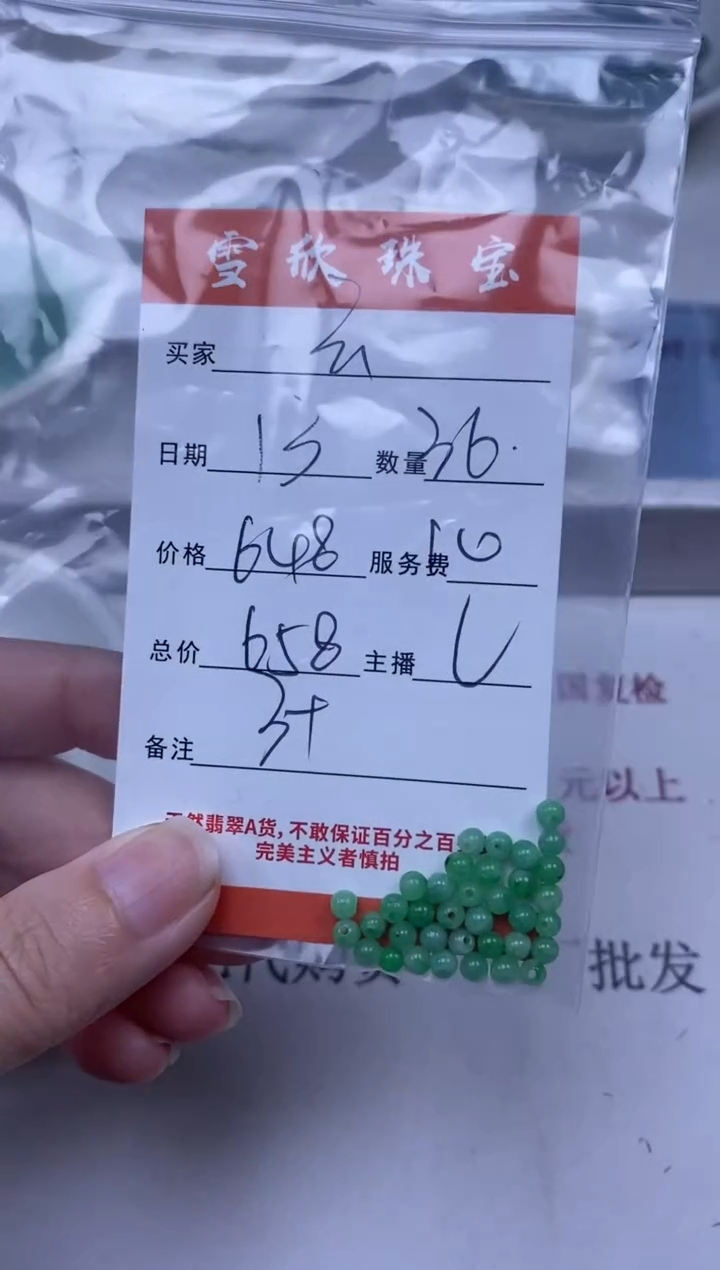 雪欣珠宝
买家 云
日期 13 数量 36.
价格 648 服务费 10
总价 658 主播
备注
天然翡翠A货，不敢保证百分之百
完美主义者慎拍
国复检
元以上
代购费
批发